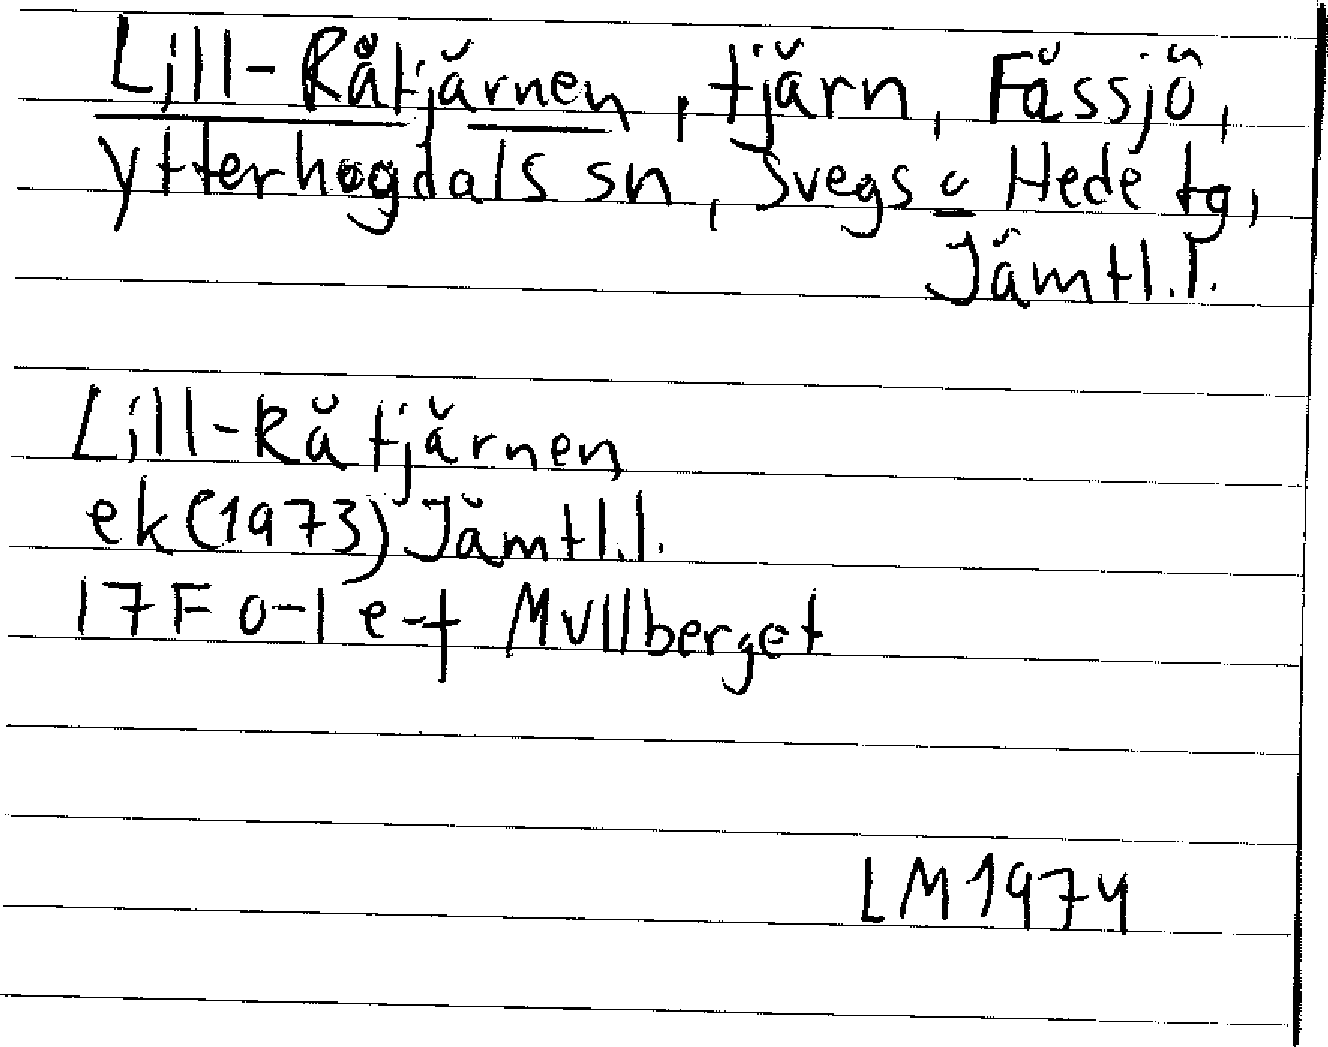 Lill-Råtjärnen, tjärn, Fåssjö,
Ytterhogdals sn, Svegs o Hede tg,
Jämtl.l.
Lill-Råtjärnen
ek (1973) Jämtl.l.
17F 0-1 e-f Mullberget
LM 1974